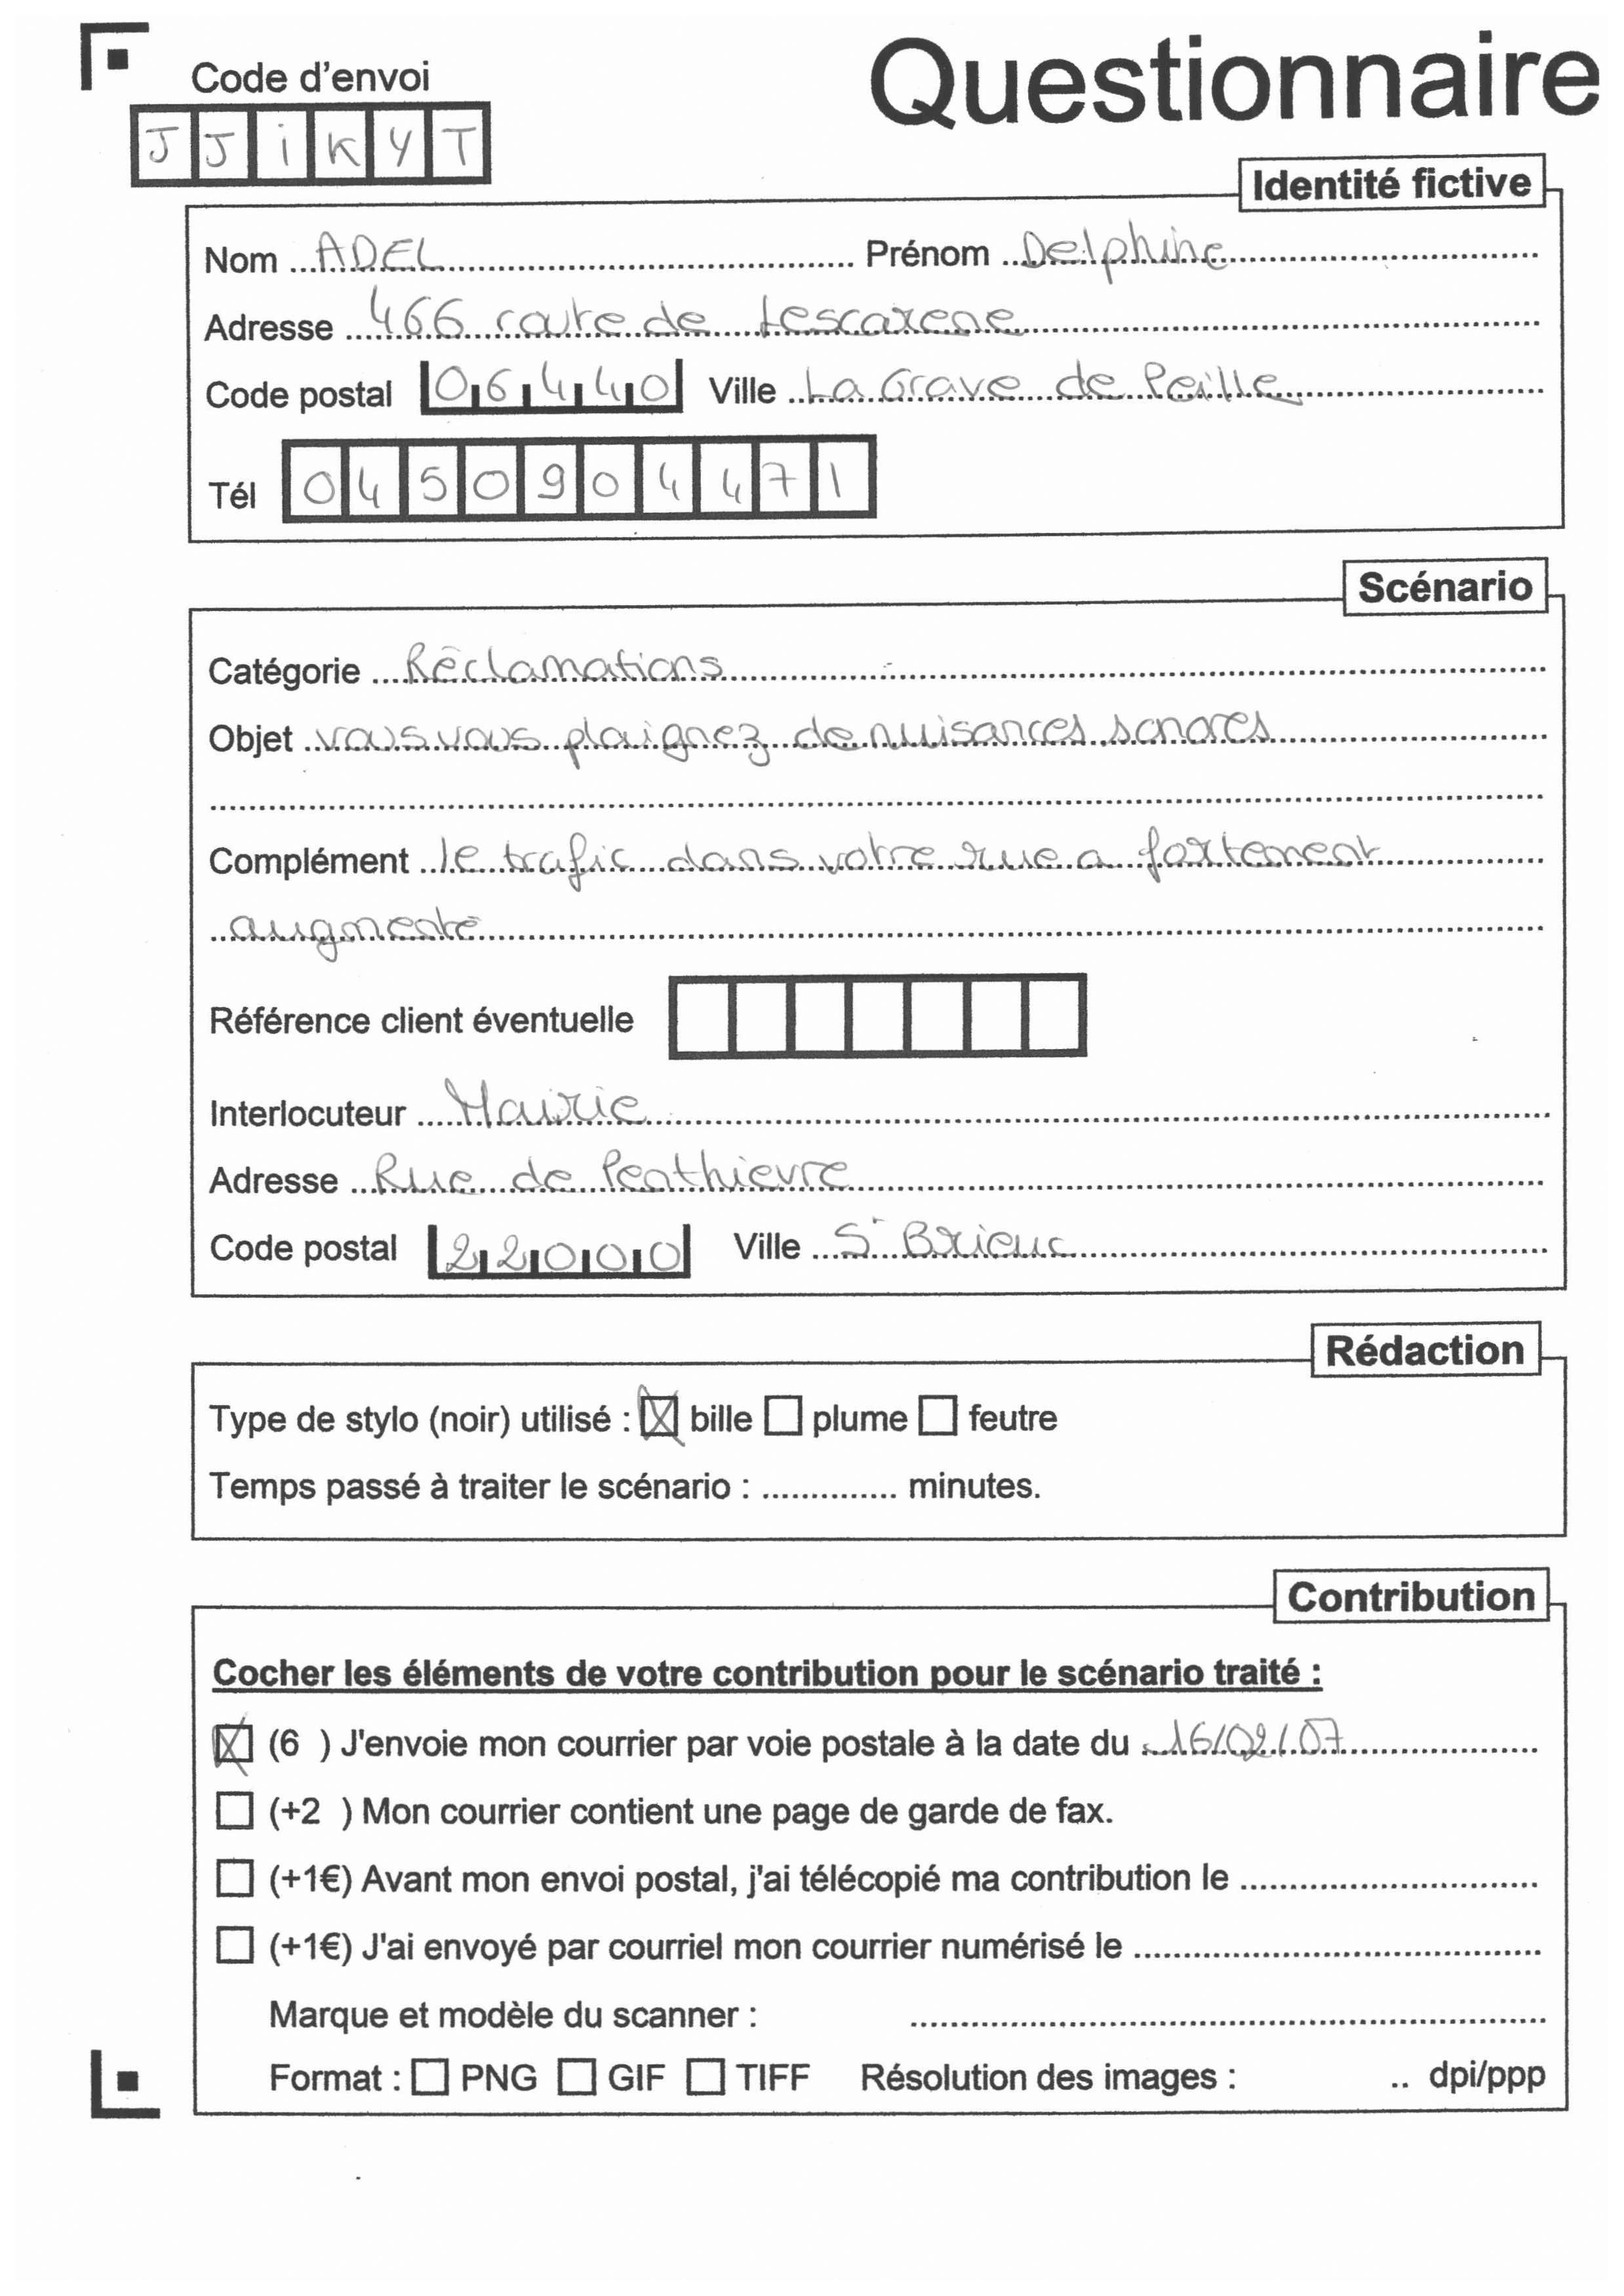 Code d'envoi
Questionnaire
J J i K Y T
Identité fictive
Nom ADEL Prénom Delphine
Adresse 466 route de Lescarene
Code postal 06440 Ville La Grave de Peille
Tél 0450904471
Scénario
Catégorie Réclamations
Objet vous vous plaignez de nuisances sonores
Complément le trafic dans votre rue a fortement
augmenté
Référence client éventuelle
Interlocuteur Mairie
Adresse Rue de Penthievre
Code postal 22000 Ville St Brieuc
Rédaction
Type de stylo (noir) utilisé : ☒ bille ☐ plume ☐ feutre
Temps passé à traiter le scénario : .............. minutes.
Contribution
Cocher les éléments de votre contribution pour le scénario traité :
☒ (6 ) J'envoie mon courrier par voie postale à la date du 16/02/07
☐ (+2 ) Mon courrier contient une page de garde de fax.
☐ (+1€) Avant mon envoi postal, j'ai télécopié ma contribution le ..............................
☐ (+1€) J'ai envoyé par courriel mon courrier numérisé le ..............................
Marque et modèle du scanner : ..............................
Format : ☐ PNG ☐ GIF ☐ TIFF Résolution des images : .. dpi/ppp